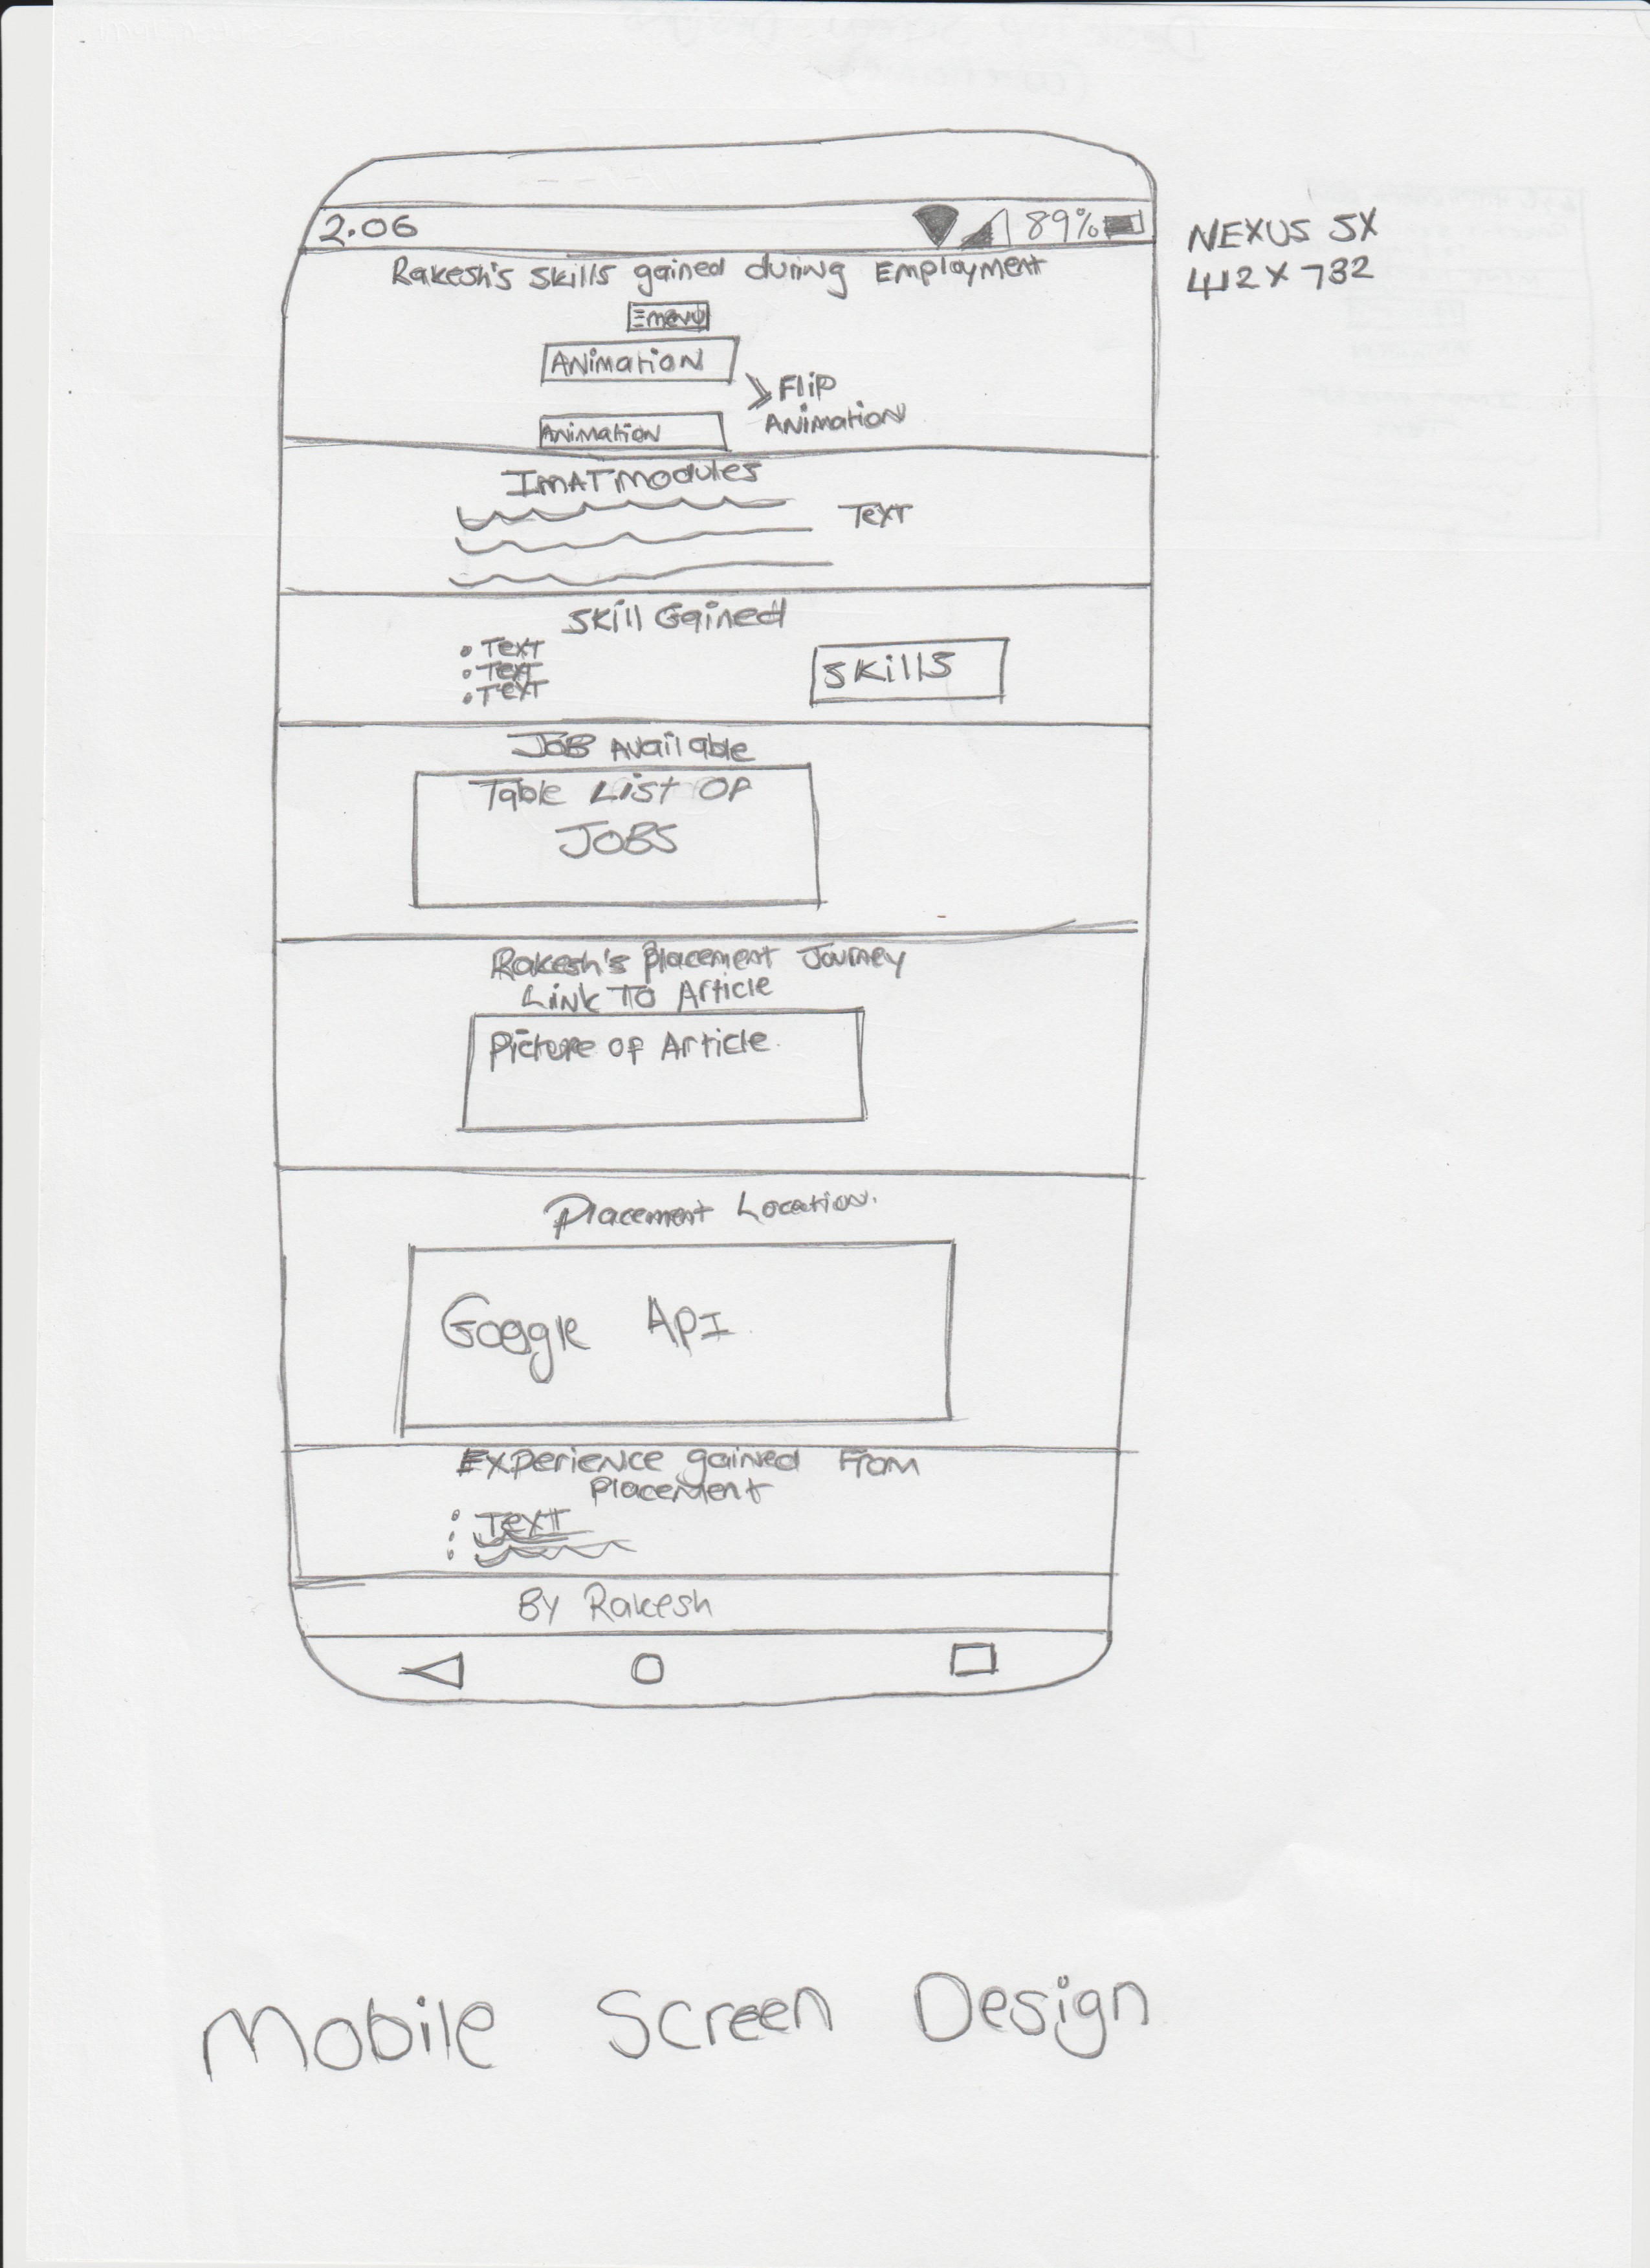 2.06 89%
NEXUS 5X
412 X 732
Rakesh's Skills gained during Employment
menu
Animation
Flip
Animation
Animation
ImAT modules
Text
Skill Gained
• Text
• Text
• Text
Skills
JOB Available
Table List Of
JOBS
Rakesh's Placement Journey
Link To Article
Picture of Article
Placement Location.
Goggle ApI
Experience gained From
Placement
Text
By Rakesh
Mobile Screen Design